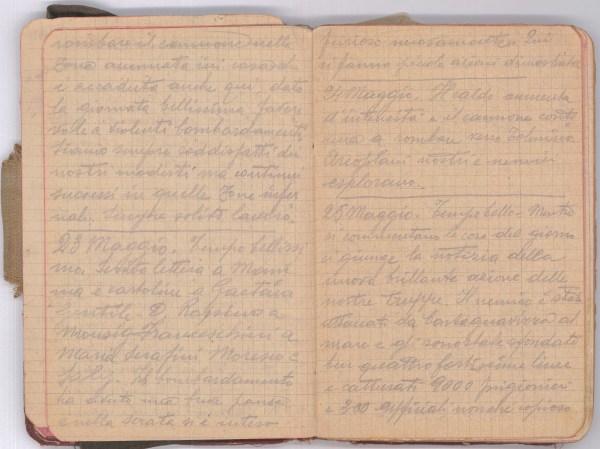 rombare il cannone nelle
zone
e accaduto anche qui, data
la giornata bellissima, favore
vole a violenti bombardamenti
Siamo sempre soddisfatti dei
nostri modesti ma continui
successi in quelle zone infer
nali. solito lavoro.
23 Maggio. Tempo bellissi
mo. lettera a Mam
ma e cartoline a Gaetana
Gentile
Franceschini a
Maria Serafini Moresio e
Il bombardamento
ha avuto una breve pausa
e nella serata si è inteso
furioso nuovamente. Qui
si fanno piccole azioni dimostrative
24 Maggio. Il caldo aumenta
d'intensità e il cannone conti
nua a rombare verso Tolmino
Areoplani nostri e nemici
esplorano.
25 Maggio. Tempo bello. Mentre
si commentano le cose del giorno
si giunge la notizia della
nuova brillante azione delle
nostre truppe. Il nemico è stato
attaccato da Castagnavizza al
mare e gli sono state sfondate
ben quattro fortissime linee
e catturati 9000 prigionieri
e 300 ufficiali nonchè copioso